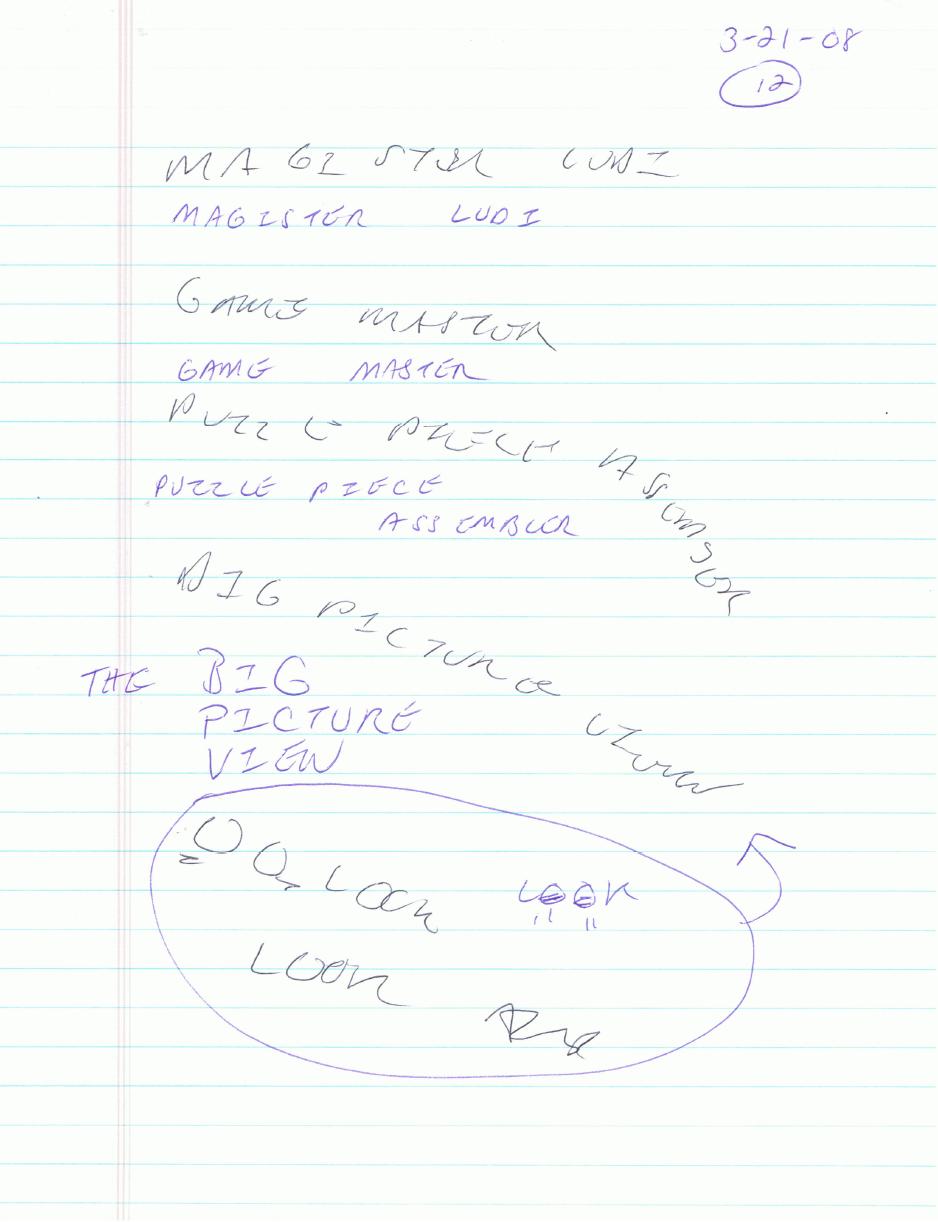 3-21-08
12
MAGISTER LUDI
MAGISTER LUDI
GAME MASTER
GAME MASTER
PUZZLE PIECE ASSEMBLER
PUZZLE PIECE
ASSEMBLER
BIG PICTURE VIEW
THE BIG
PICTURE
VIEW
LOOK LOOK
LOOK